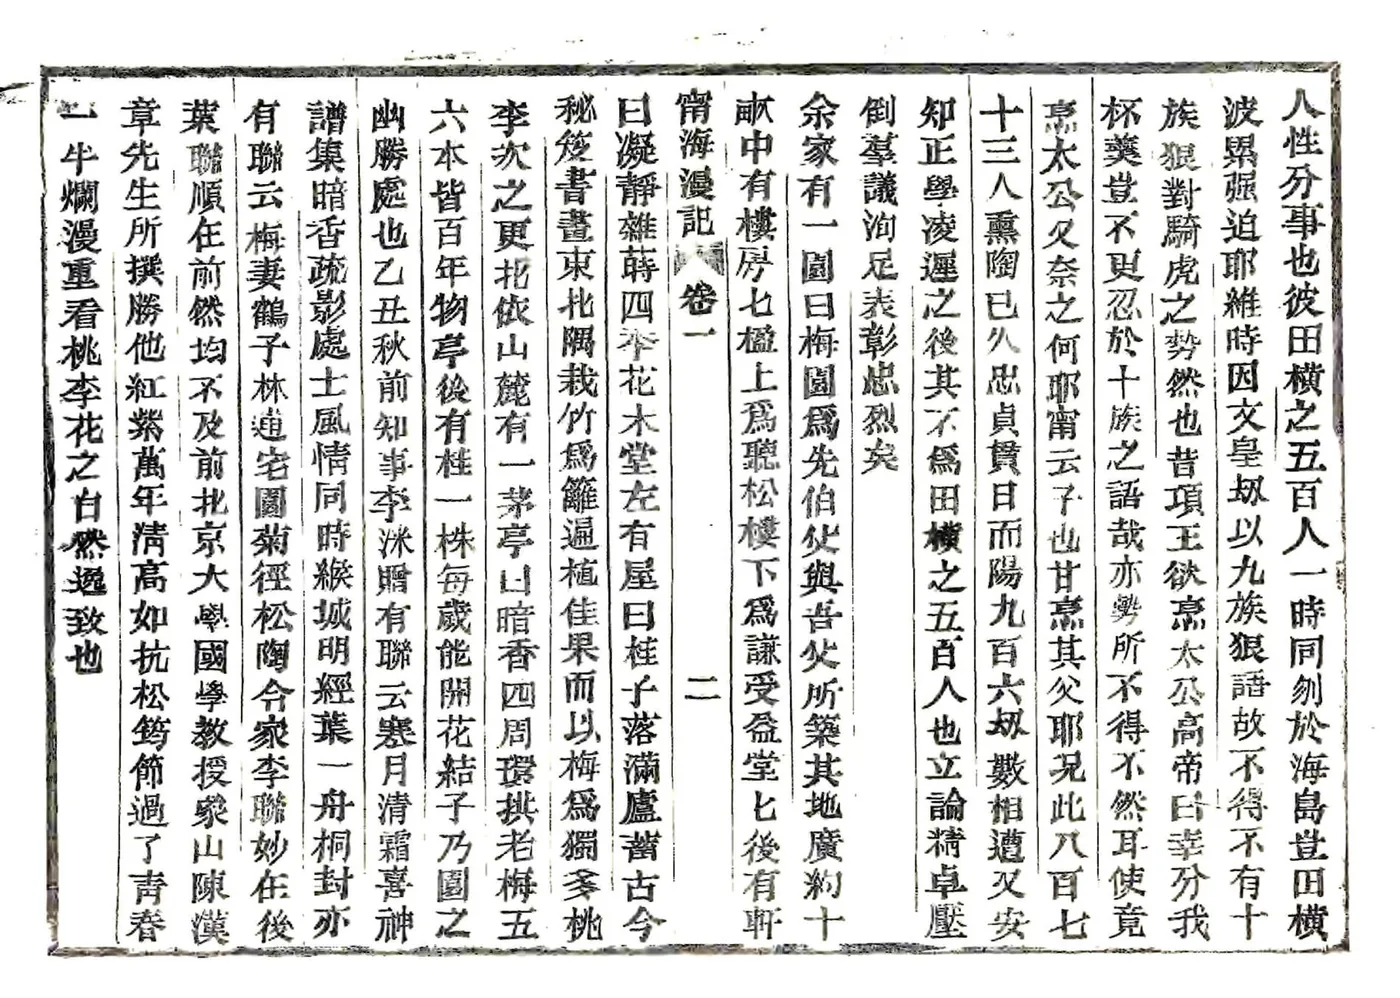 人性分事也彼田橫之五百人一時同刎於海島豈田橫
波累强迫耶維時因文皇刼以九族狠語故不得不有十
族狠對騎虎之勢然也昔項王欲烹太公高帝曰幸分我
杯羹豈不更忍於十族之語哉亦勢所不得不然耳使竟
烹太公又奈之何耶甯云子也甘烹其父耶况此八百七
十三人熏陶已久忠貞貫日而陽九百六刼數相遭又安
知正學凌遲之後其不爲田橫之五百人也立論精卓壓
倒羣議洵足表彰忠烈矣
余家有一園曰梅園爲先伯父與吾父所築其地廣約十
畝中有樓房七楹上爲聽松樓下爲謙受益堂七後有軒
甯海漫記 卷一 二
曰凝靜雜蒔四季花木堂左有屋曰桂子落滿廬蓄古今
秘笈書畫東北隅栽竹爲籬遍植佳果而以梅爲獨多桃
李次之更北依山麓有一茅亭曰暗香四周環拱老梅五
六本皆百年物亭後有桂一株每歲能開花結子乃園之
幽勝處也乙丑秋前知事李洣贈有聯云寒月清霜喜神
譜集暗香疏影處士風情同時緱城明經葉一舟桐封亦
有聯云梅妻鶴子林逋宅園菊徑松陶令家李聯妙在後
葉聯順在前然均不及前北京大學國學教授象山陳漢
章先生所撰勝他紅紫萬年清高如抗松筠節過了青春
一半爛漫重看桃李花之自然逸致也